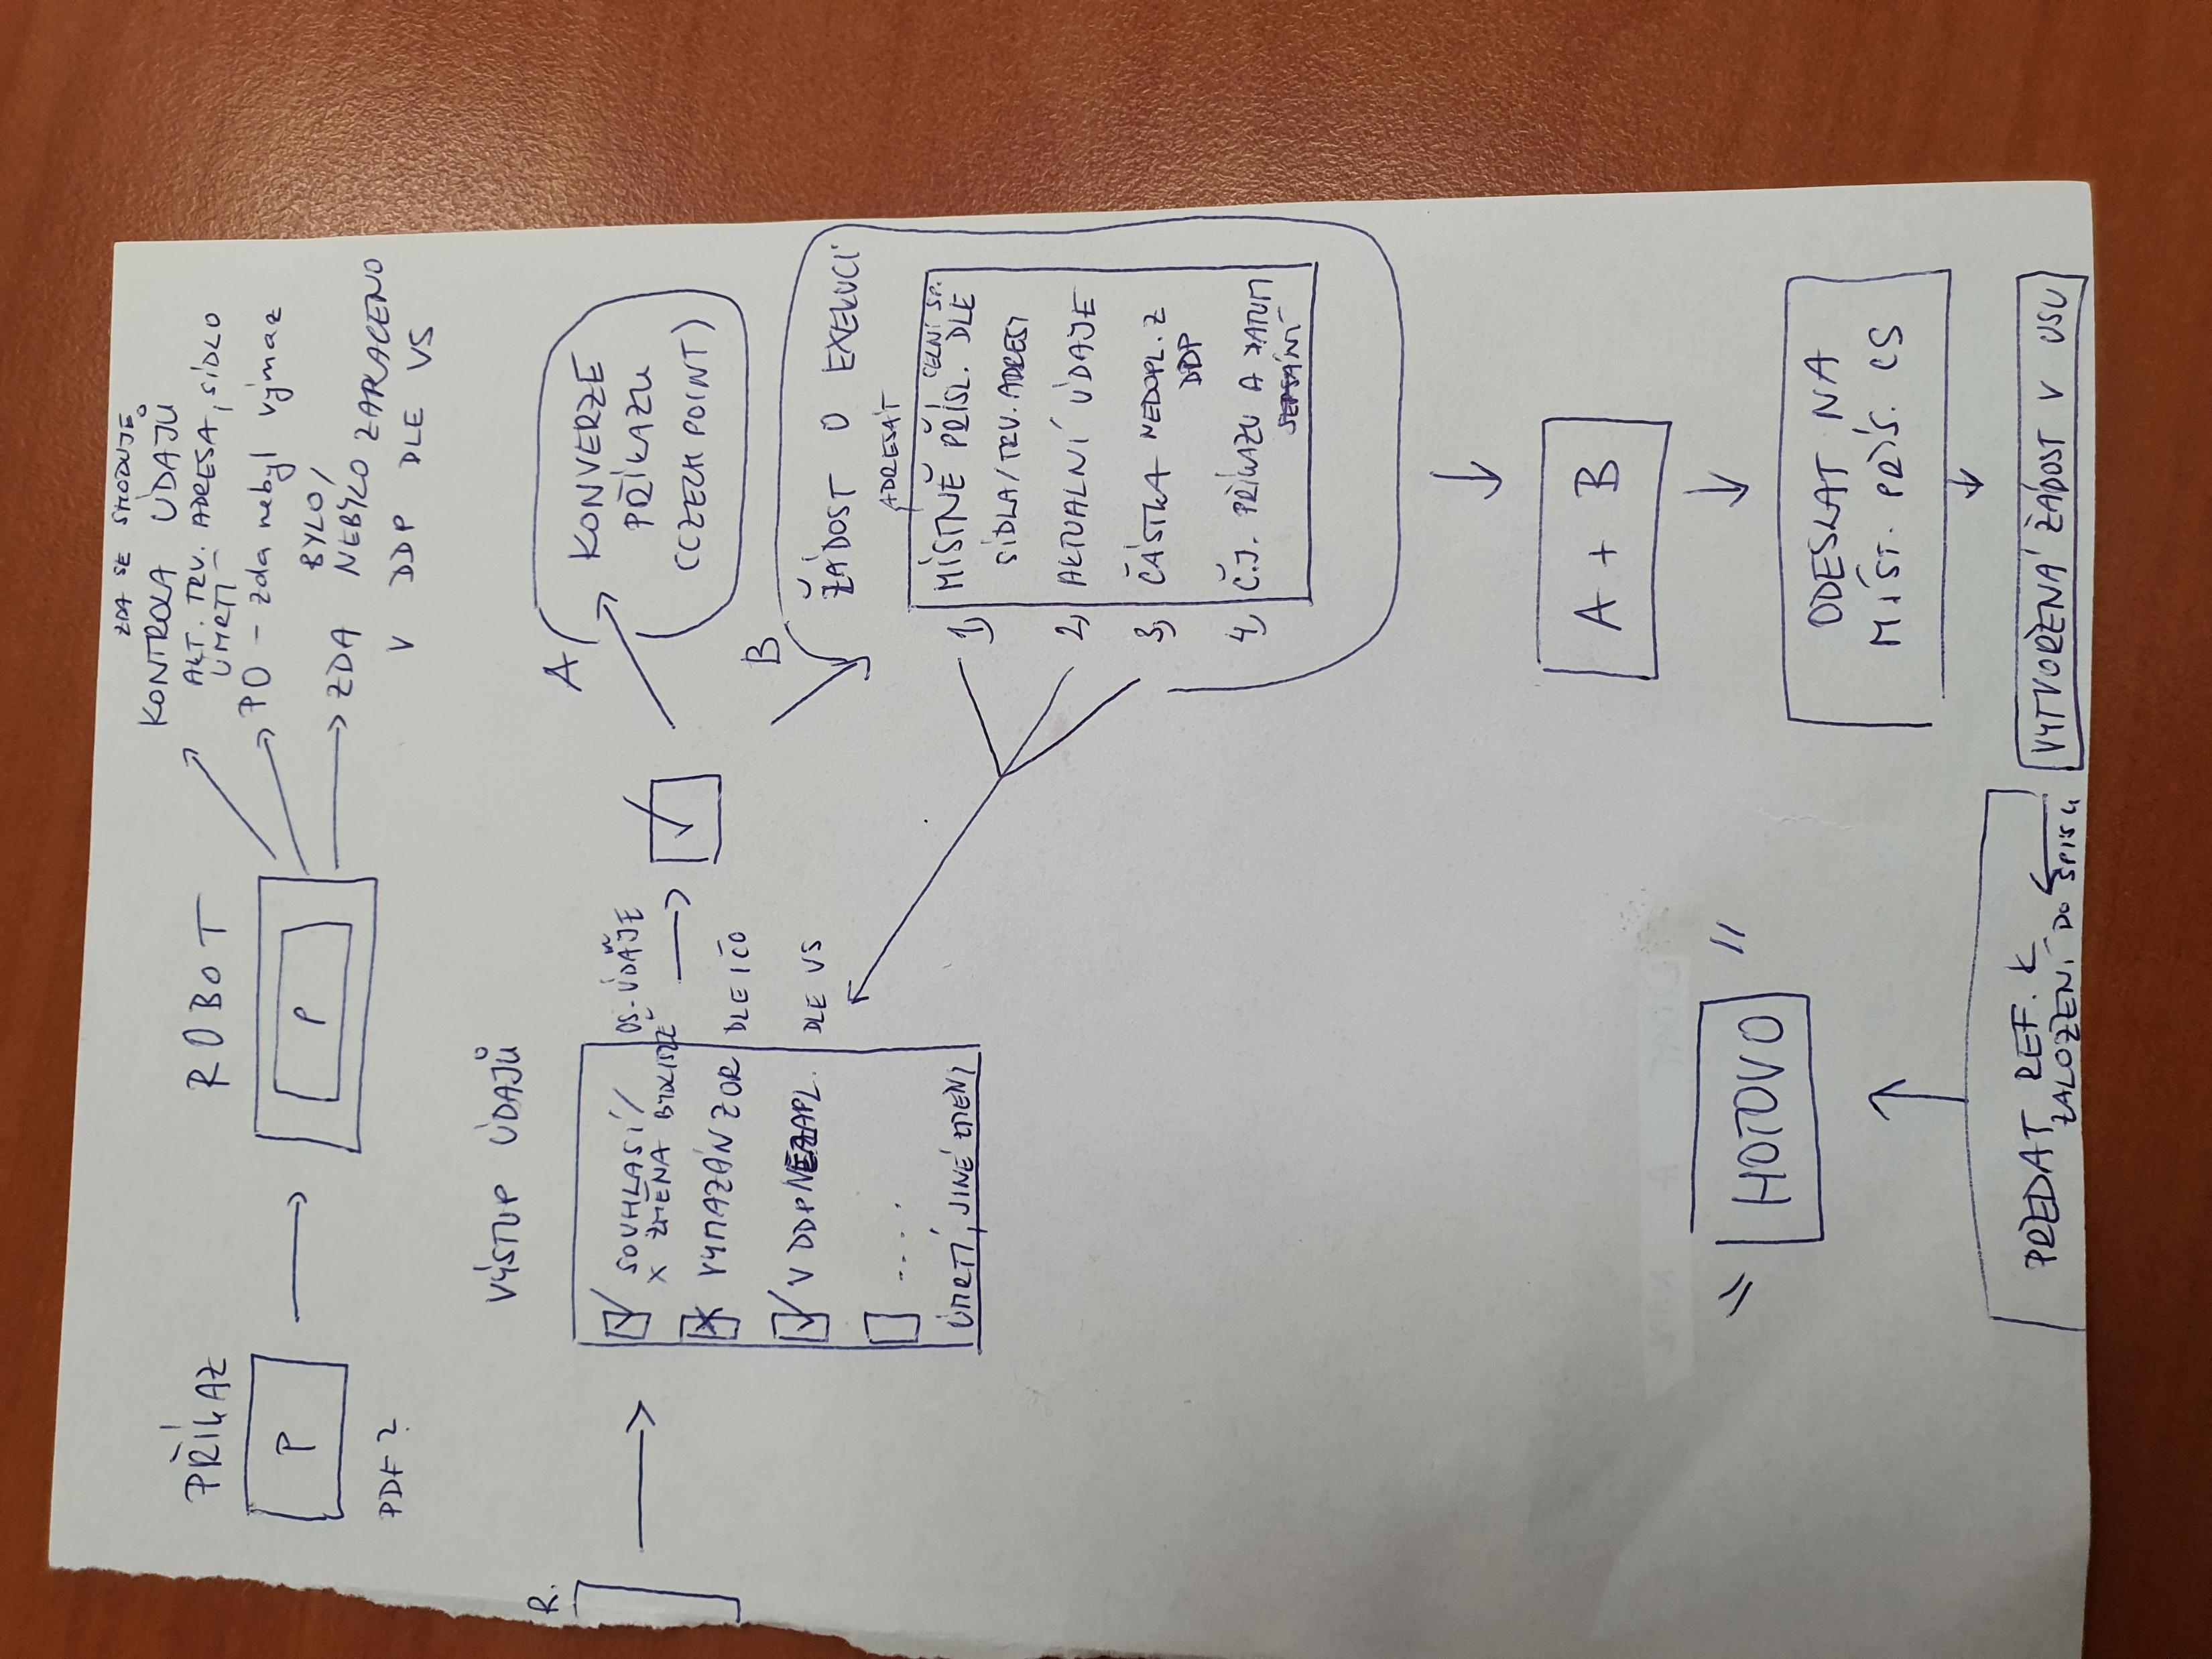 PŘÍKAZ
P
PDF?
ROBOT
P
ZDA SE SHODUJE
KONTROLA ÚDAJŮ
AKT. TRV. ADRESA, SÍDLO
ÚMRTÍ
PO - zda nebyl výmaz
BYLO/
ZDA NEBYLO ZAPLACENO
V DDP DLE VS
R.
VÝSTUP ÚDAJŮ
SOUHLASÍ/
X ZMĚNA BYDLIŠTĚ
OS. ÚDAJE
VYMAZÁN Z OR
DLE IČO
V DDP NEZAPL.
DLE VS
....
ÚMRTÍ, JINÉ JMÉNY
A
KONVERZE
PŘÍKAZU
(CZECH POINT)
B
ŽÁDOST O EXEKUCI
ADRESÁT
CELNÍ SP.
1) MÍSTNĚ PŘÍSL. DLE
SÍDLA/TRV. ADRESY
2) AKTUALNÍ ÚDAJE
3) ČÁSTKA NEDOPL. Z
DDP
4) Č.J. PŘÍKAZU A DATUM
A + B
ODESLAT NA
MÍST. PŘÍS. CS
VYTVOŘENÁ ŽÁDOST V USU
PŘEDAT REF. K
ZALOŽENÍ DO SPISU
" HOTOVO "